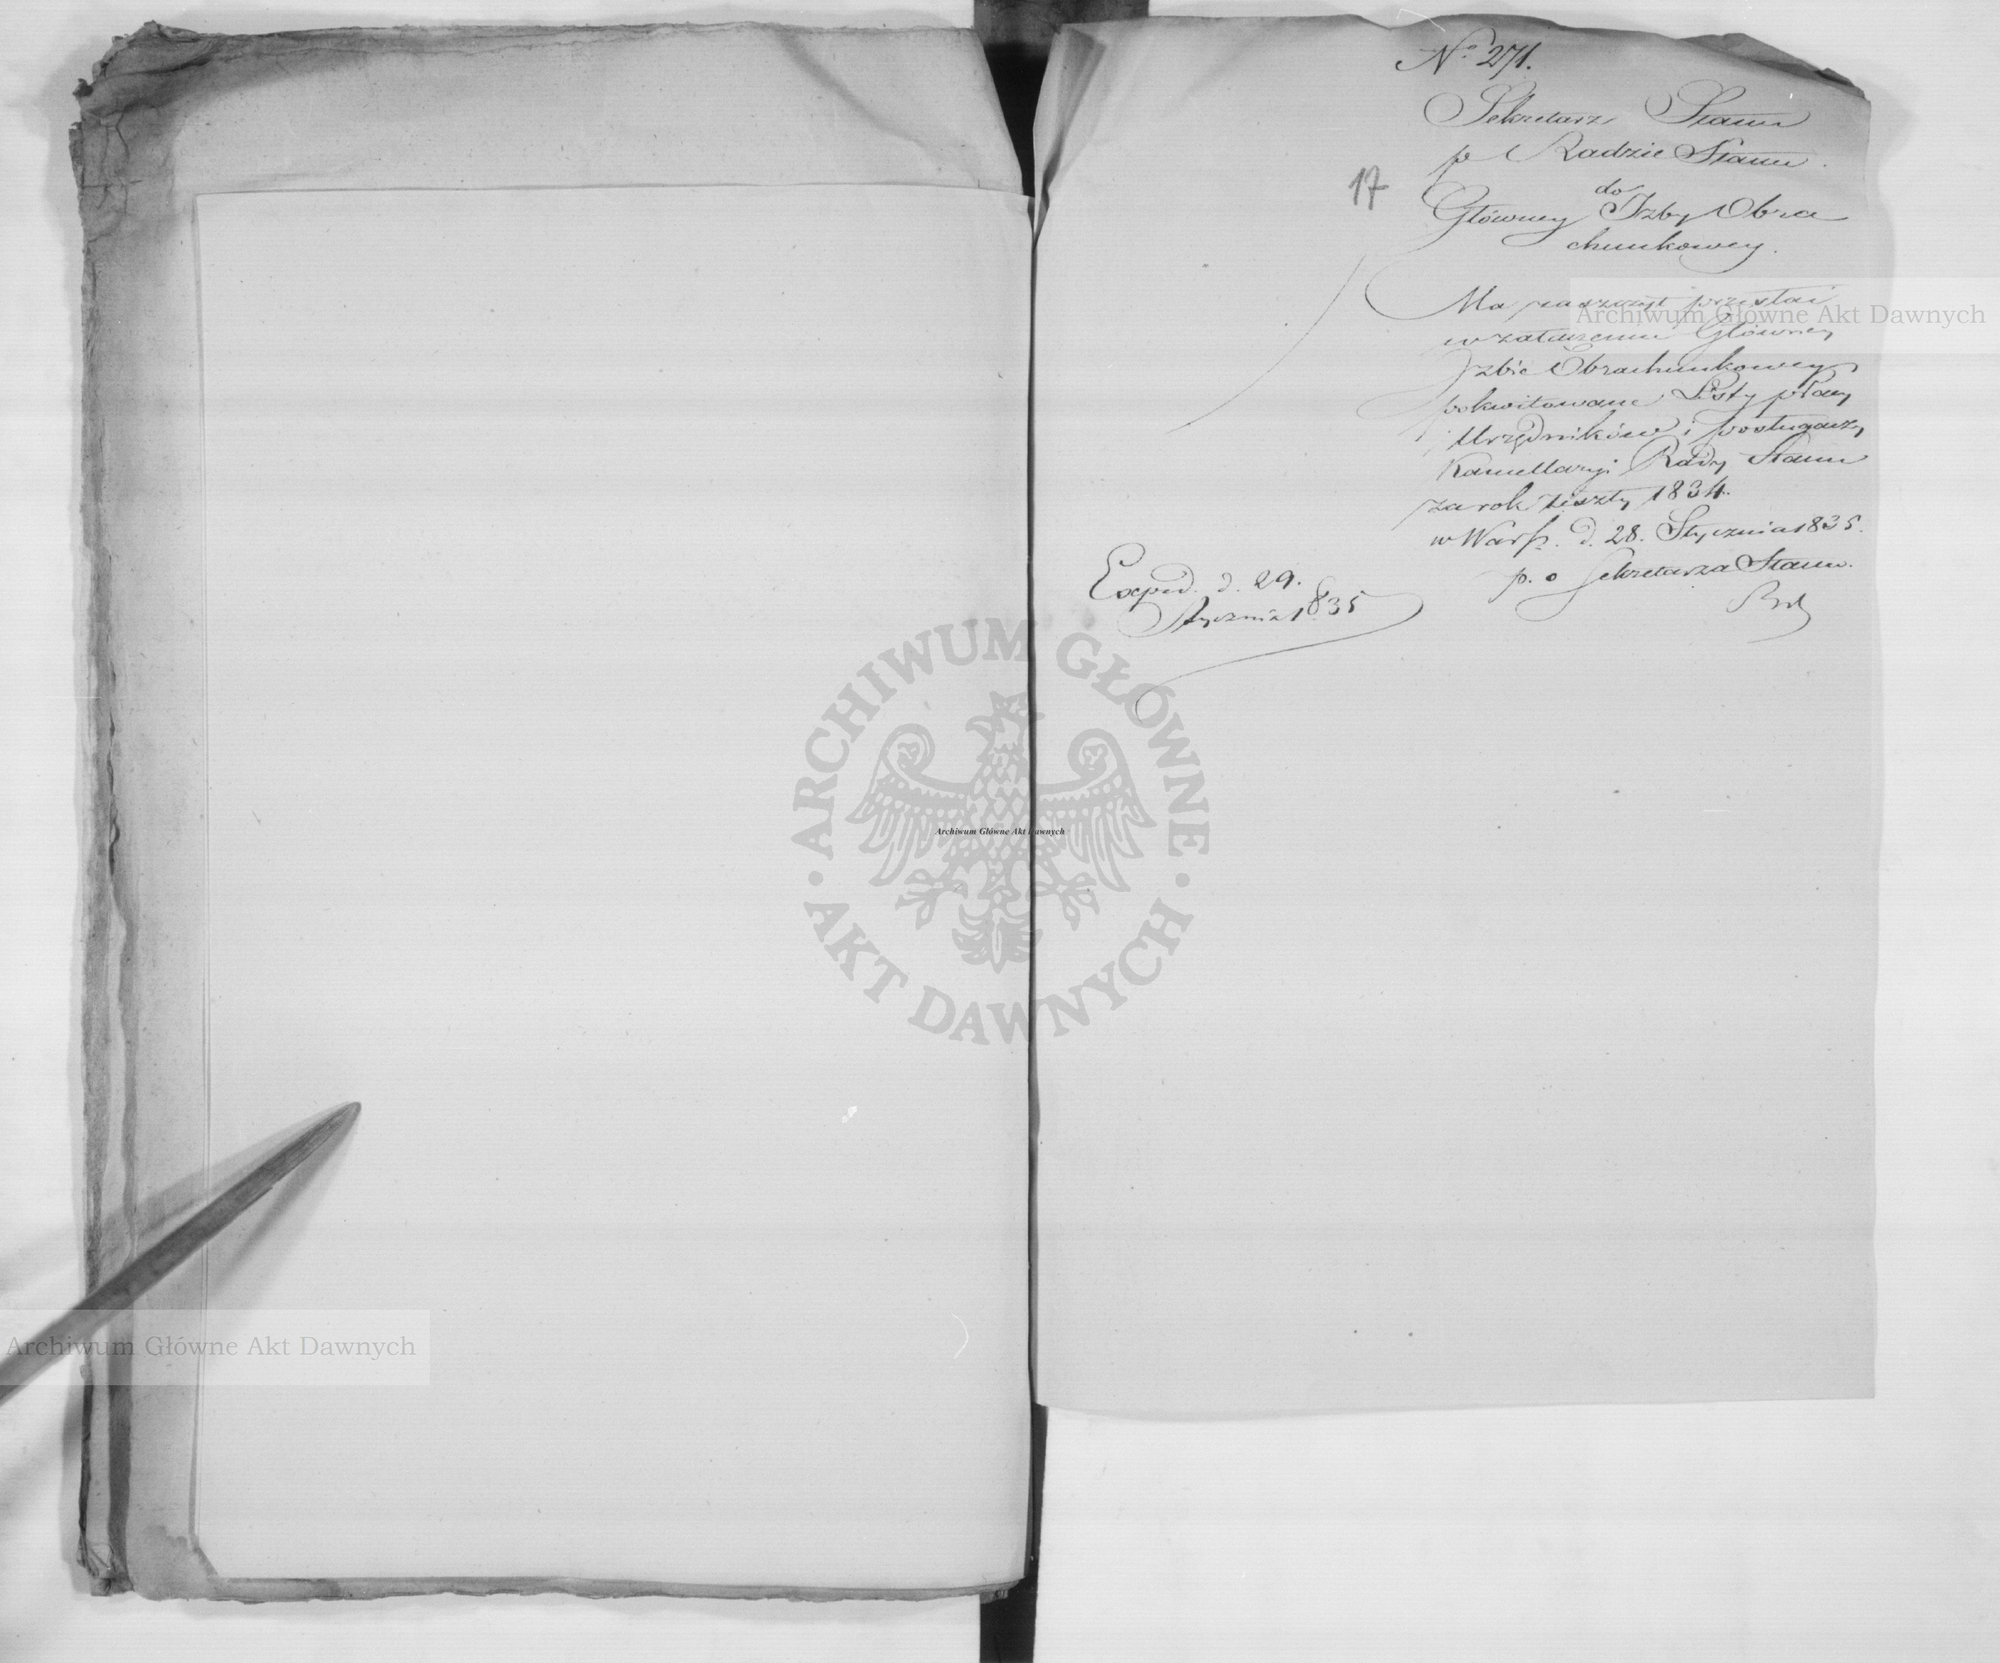 No 271.
Sekretarz Stanu
p Radzie Stanu.
17
do
Główney Izby Obra
chunkowey.
Ma zaszczyt przesłać
w załączeniu Główney
Izbie Obrachunkowey
pokwitowane Listy płacy
Urzędników i posługaczy
Kancellaryi Rady Stanu
za rok zeszły 1834.
w Warsz. d. 28. Stycznia 1835.
p. o Sekretarza Stanu.
Exped. d. 29.
Stycznia 1835
Archiwum Główne Akt Dawnych
ARCHIWUM GŁÓWNE
Archiwum Główne Akt Dawnych
AKT DAWNYCH
Archiwum Główne Akt Dawnych